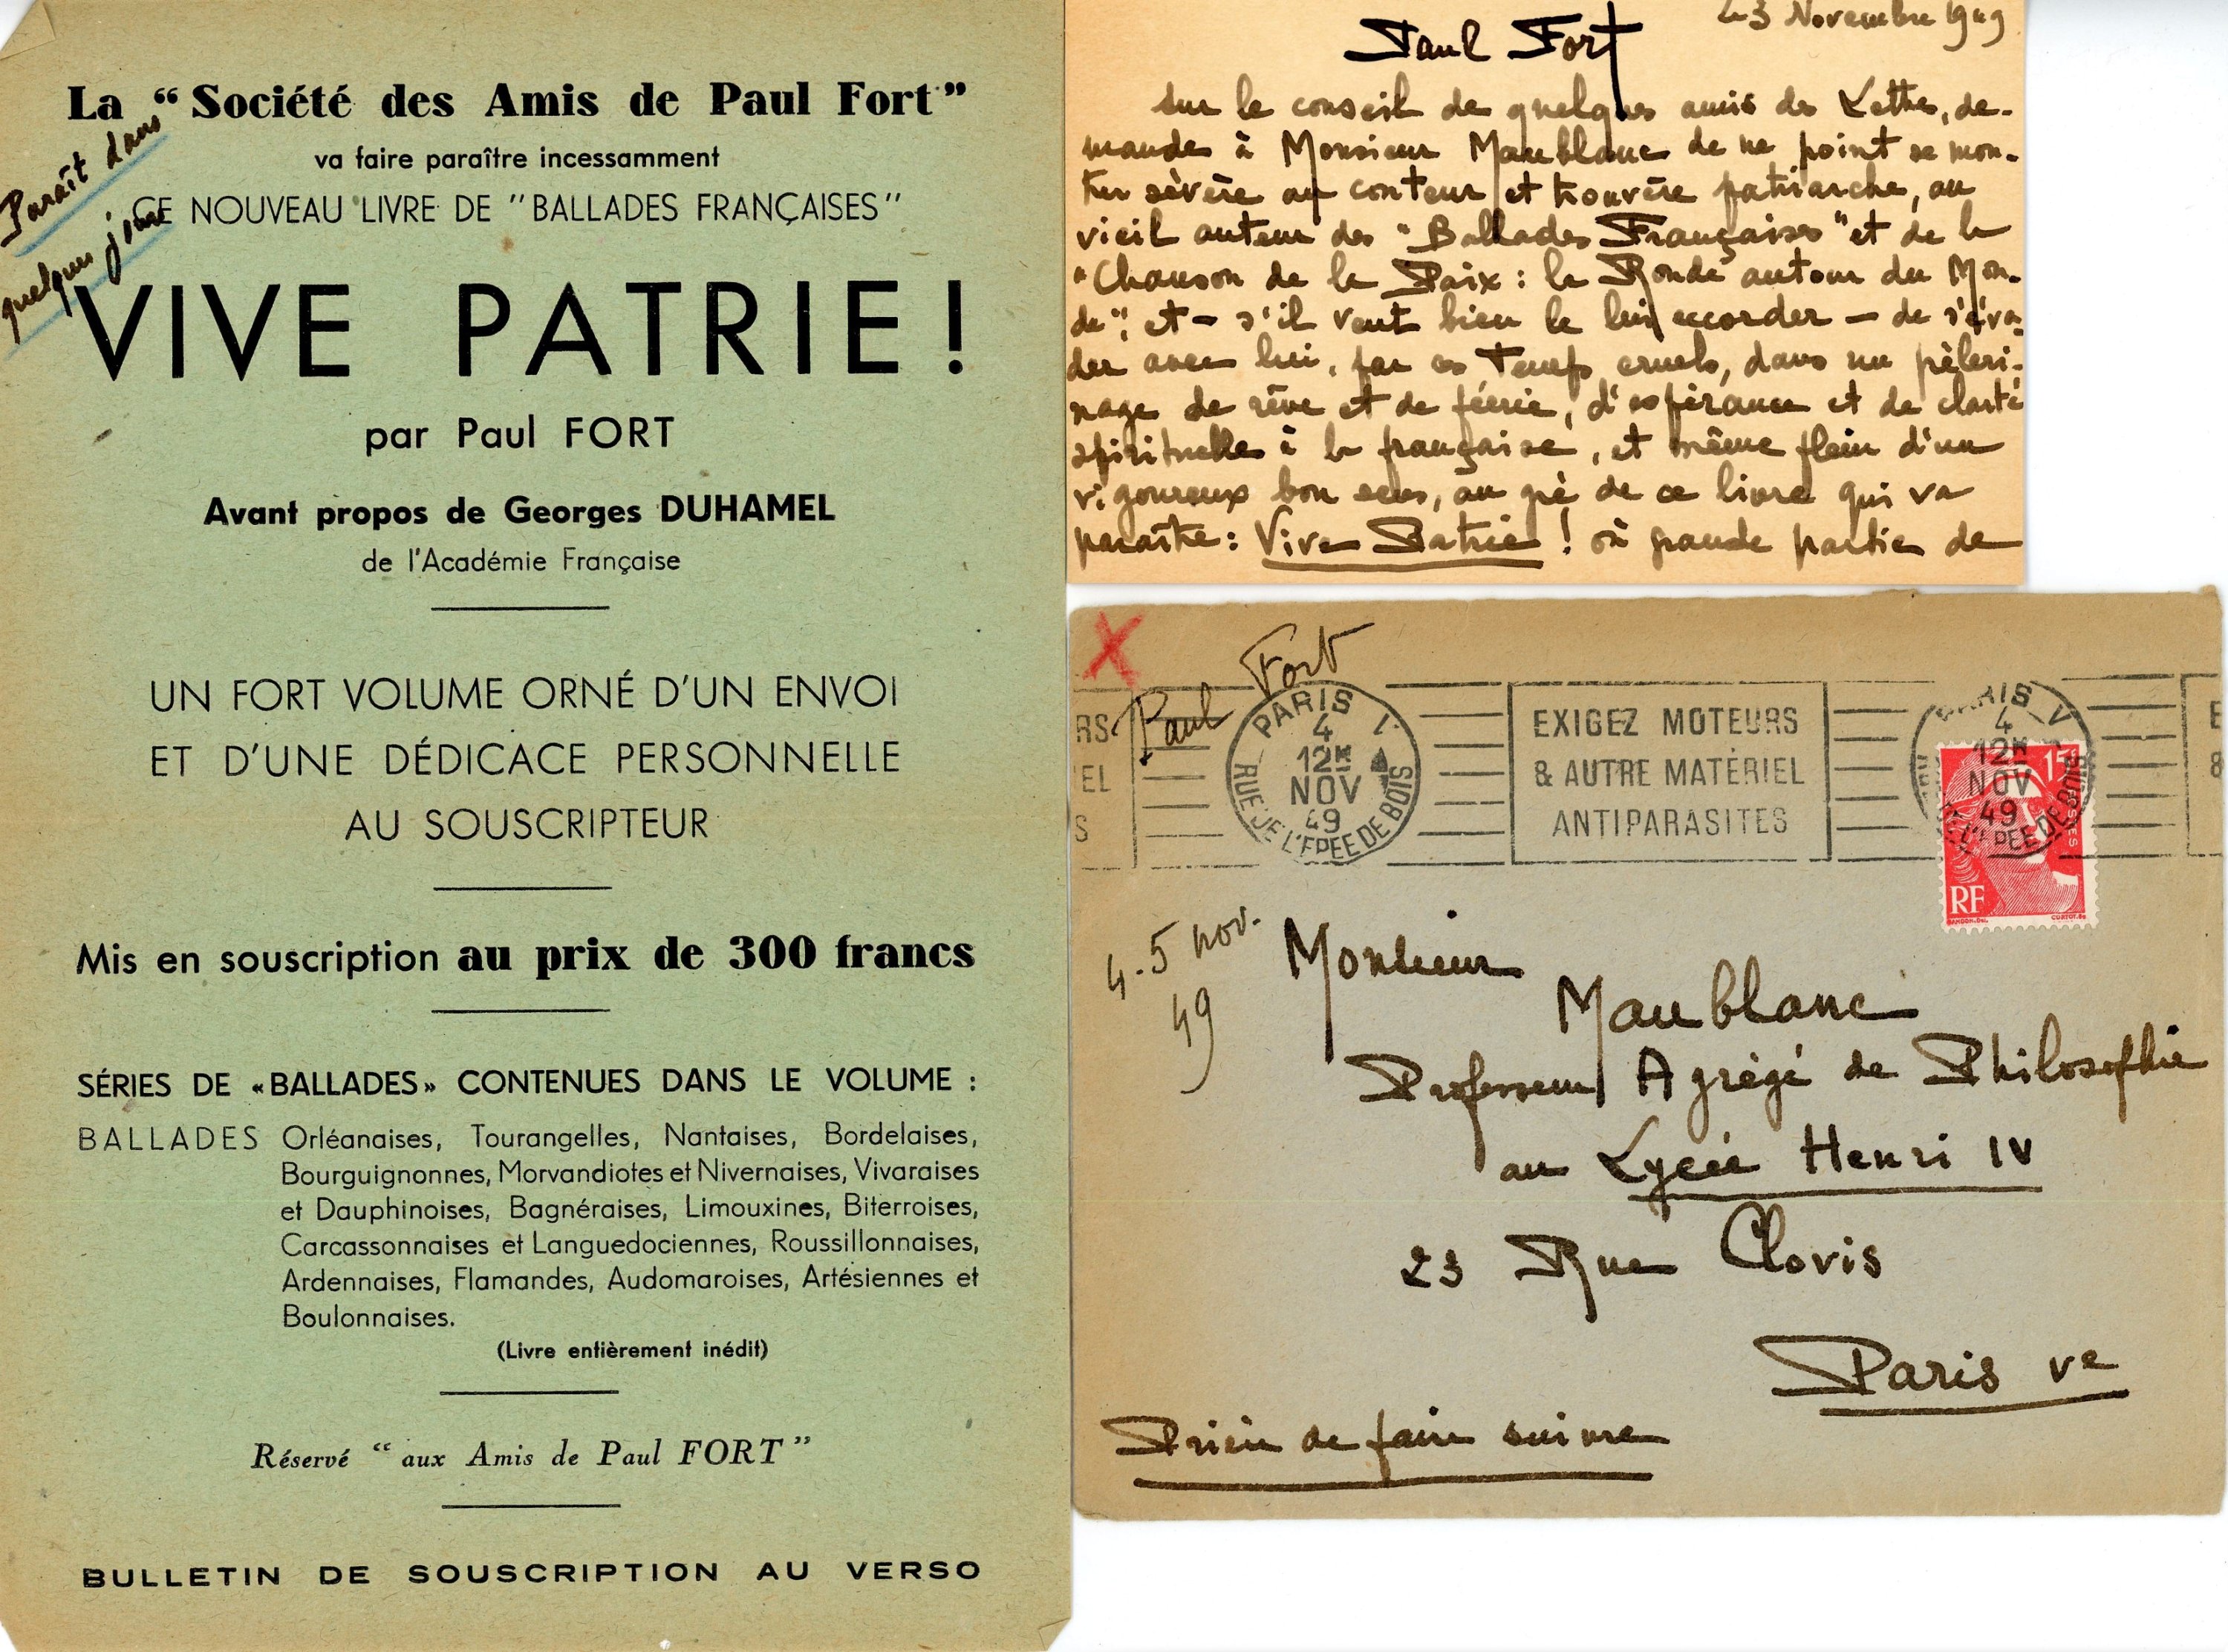 La “ Société des Amis de Paul Fort ”
va faire paraître incessamment
CE NOUVEAU LIVRE DE “BALLADES FRANÇAISES”
Paraît dans
quelques jours
VIVE PATRIE !
par Paul FORT
Avant propos de Georges DUHAMEL
de l'Académie Française
UN FORT VOLUME ORNÉ D'UN ENVOI
ET D'UNE DÉDICACE PERSONNELLE
AU SOUSCRIPTEUR
Mis en souscription au prix de 300 francs
SÉRIES DE «BALLADES» CONTENUES DANS LE VOLUME :
BALLADES Orléanaises, Tourangelles, Nantaises, Bordelaises,
Bourguignonnes, Morvandiotes et Nivernaises, Vivaraises
et Dauphinoises, Bagnéraises, Limouxines, Biterroises,
Carcassonnaises et Languedociennes, Roussillonnaises,
Ardennaises, Flamandes, Audomaroises, Artésiennes et
Boulonnaises.
(Livre entièrement inédit)
Réservé “ aux Amis de Paul FORT ”
BULLETIN DE SOUSCRIPTION AU VERSO
Novembre 1949
Paul Fort
sur le conseil de quelques amis des Lettres, de-
mande à Monsieur Maublanc de ne point se mon-
trer sévère au conteur et trouvère patriarche, au
vieil auteur des "Ballades Françaises" et de la
"Chanson de la Paix : la Ronde autour du Mon-
de", et – s'il veut bien le lui accorder – de s'éva-
der avec lui, par ces Temps cruels, dans un pèleri-
nage de rêve et de féerie, d'espérance et de clarté
spirituelle à la française, et même plein d'un
vigoureux bon sens, au gré de ce livre qui va
paraître : Vive Patrie ! où grande partie de
Paul Fort
RS
EL
S
PARIS V
4
12H
NOV
49
RUE DE L'EPEE DE BOIS
EXIGEZ MOTEURS
& AUTRE MATÉRIEL
ANTIPARASITES
PARIS V
4
12H
NOV
49
L'EPEE DE BOIS
E
&
15F
POSTES
RF
GANDON.DEL.
CORTOT.SC
4-5 nov.
49
Monsieur
Maublanc
Professeur Agrégé de Philosophie
au Lycée Henri IV
23 Rue Clovis
Paris Ve
Prière de faire suivre